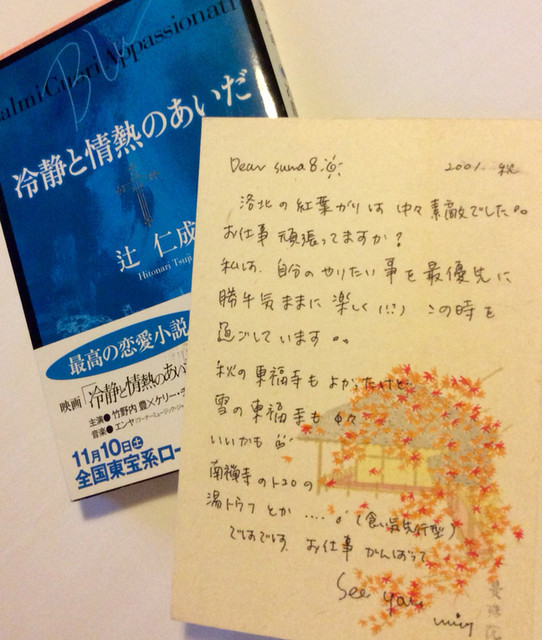 Calmi Cuori Appassionati
Blu
冷静と情熱のあいだ
辻 仁成
Hitonari Tsuji
最高の恋愛小説
映画「冷静と情熱のあいだ
主演●竹野内 豊×ケリー・チ
音楽●エンヤ(ワーナーミュージック・ジャ
11月10日土
全国東宝系ロー
Dear suna8.
2001. 秋
洛北の紅葉がりは 中々素敵でした。。
お仕事 頑張ってますか?
私は、自分のやりたい事を最優先に
勝手気ままに楽しく(!?) この時を
過ごしています。。
秋の東福寺もよかったけど…
雪の東福寺も 中々
いいかも
南禅寺のトコロの
湯トウフ とか ....。(食い気先行型)
ではでは、お仕事 がんばって
See you